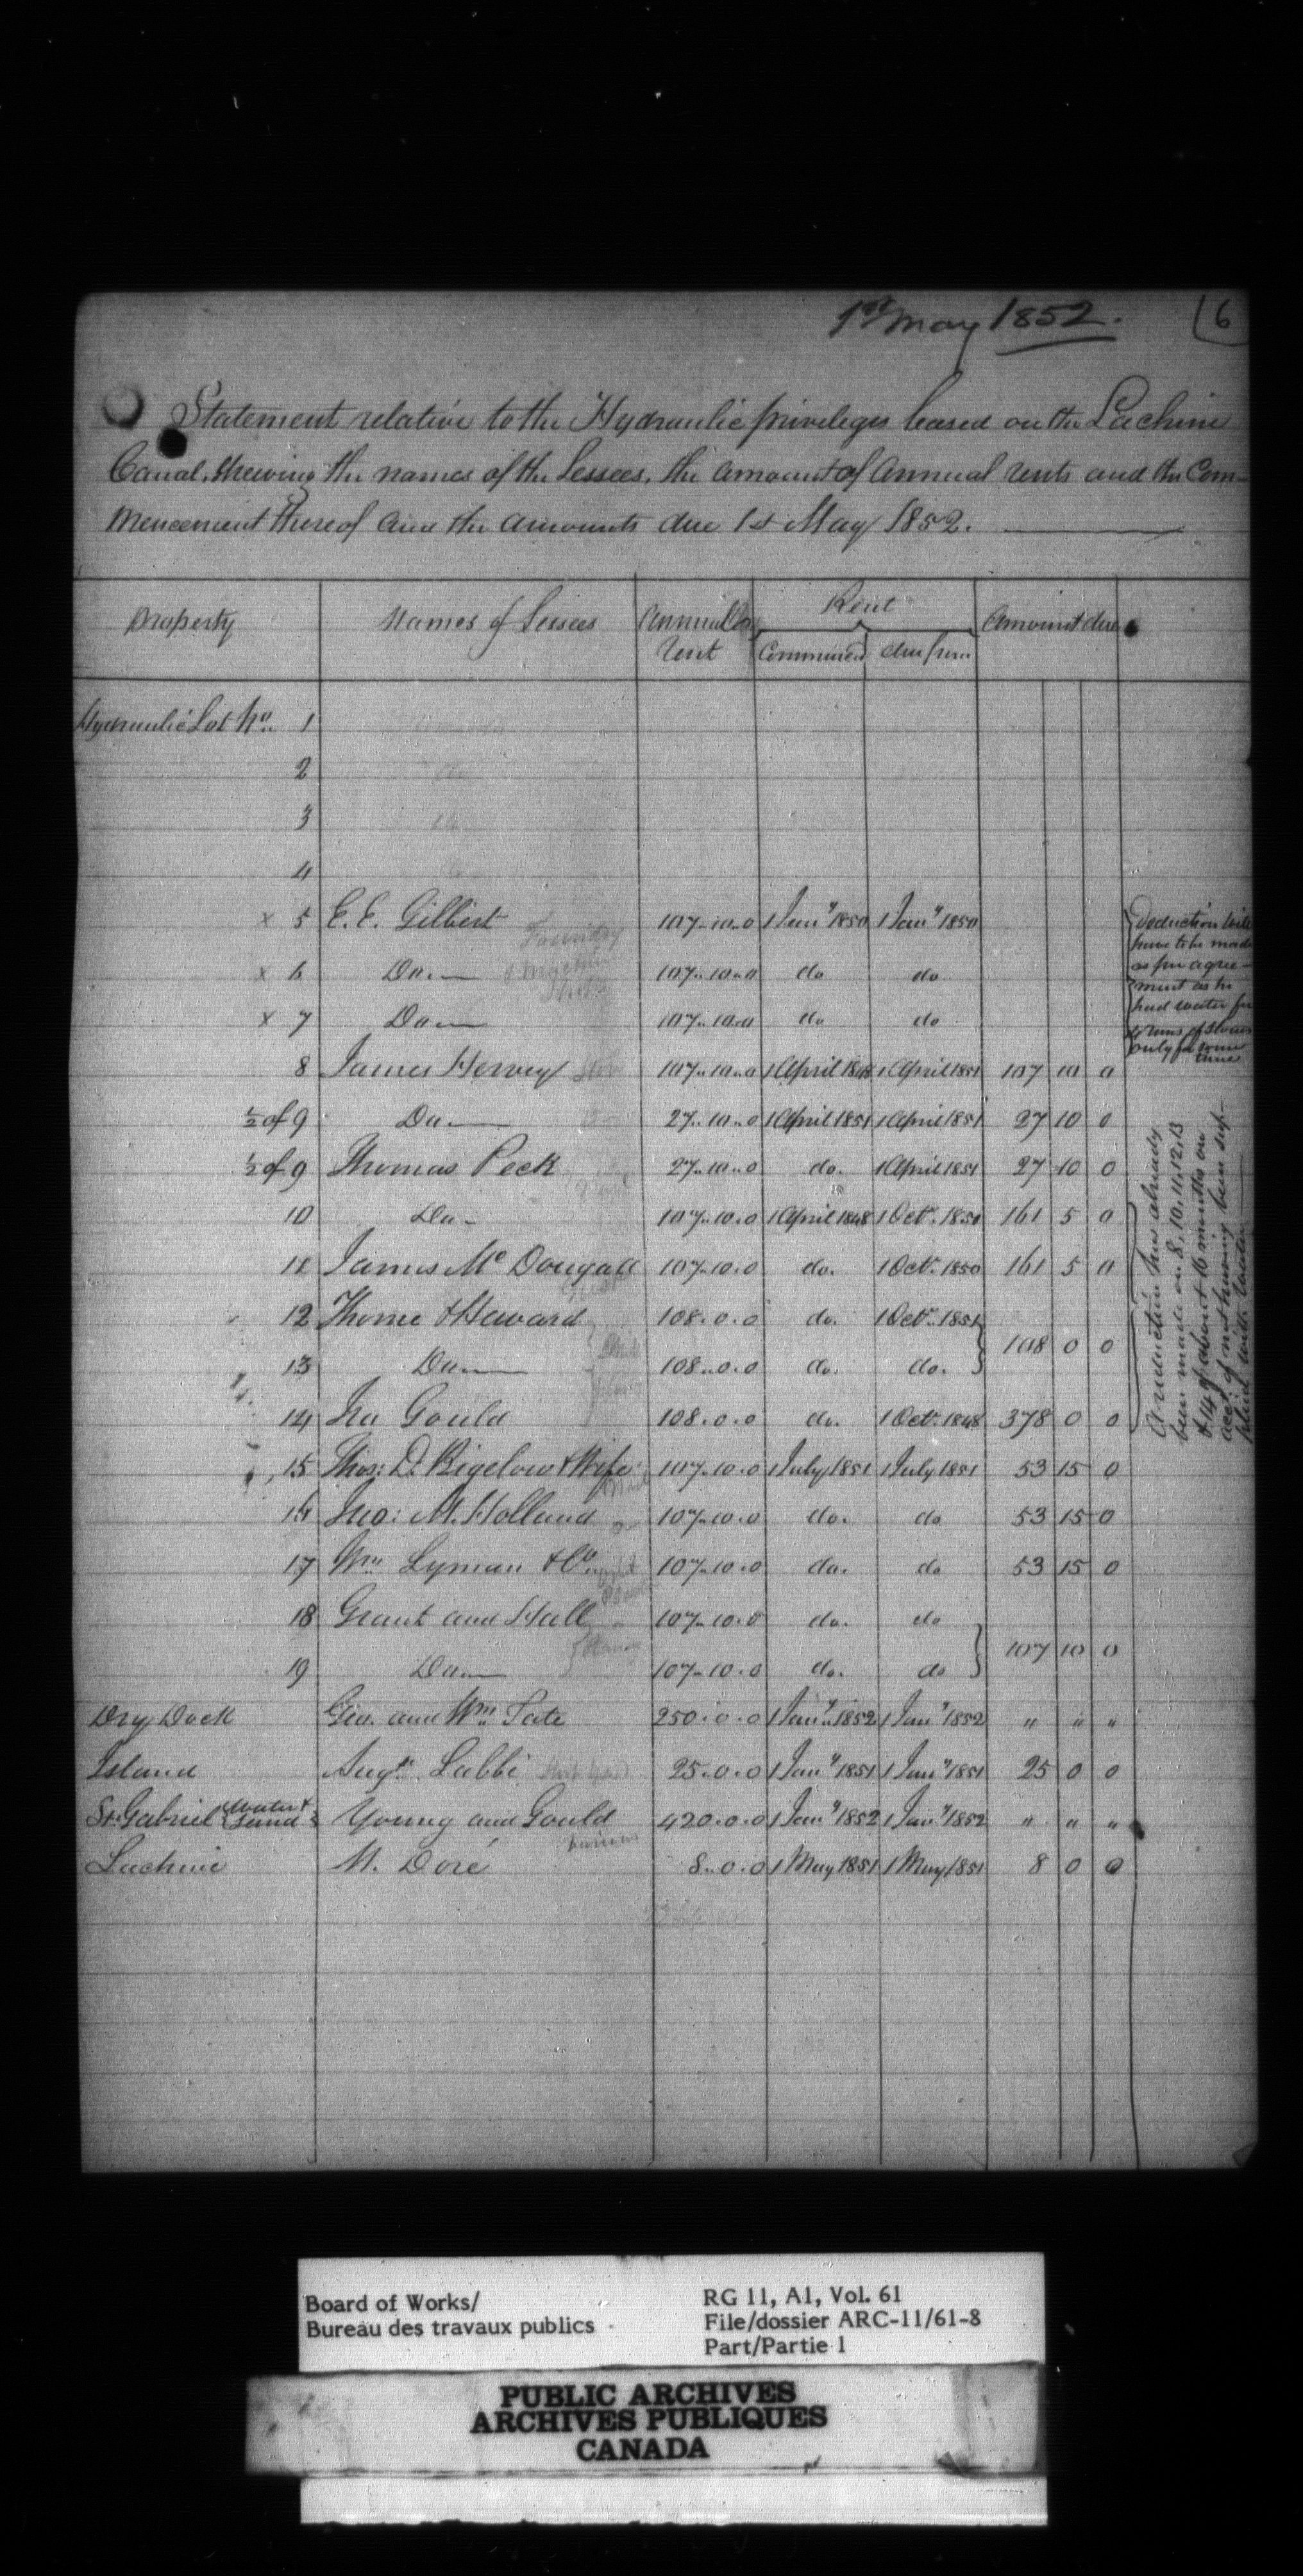 1st May 1852.
6
Statement relative to the Hydraulic privileges leased on the Lachine
Canal, shewing the names of the Lessees, the amount of annual rents and the Com-
mencement thereof and the amounts due 1st May 1852.
Property Names of Lessees Annual Rent Rent Commenced due from Amount due
Hydraulic Lot No. 1
2
3
4
x 5 E. E. Gilbert Foundry 107..10..0 1 Jany 1850 1 Jany 1850
x 6 Do. 107..10..0 do do
x 7 Do 107..10..0 do do
Deduction will
have to be made
as per agree-
ment as he
had water for
2 runs of stones
only for some
time
8 James Hervey Store 107..10..0 1 April 1848 1 April 1851 107 10 0
½ of 9 Do. 27..10..0 1 April 1851 1 April 1851 27 10 0
½ of 9 Thomas Peck 27..10..0 do. 1 April 1851 27 10 0
10 Do. 107..10.0 1 April 1848 1 Oct. 1850 161 5 0
11 James Mc Dougall 107..10.0 do. 1 Oct. 1850 161 5 0
12 Thome & Heward 108.0.0 do. 1 Oct. 1851
13 Do 108..0.0 do. do. 108 0 0
14 Ira Gould 108.0.0 do. 1 Oct. 1848 378 0 0
A reduction has already
been made on 8, 10, 11, 12, 13
& 14 of about 16 months on
acct. of not having been sup-
plied with water
15 Thos: D. Bigelow & Wife 107..10.0 1 July 1851 1 July 1851 53 15 0
16 Jno: M. Holland 107..10.0 do. do 53 15 0
17 Wm. Lyman & Co. 107..10.0 do. do 53 15 0
18 Grant and Hall 107..10.0 do. do
19 Do 107..10.0 do. do 107 10 0
Dry Dock Geo. and Wm. Tate 250.0.0 1 Jany 1852 1 Jany 1852 " " "
Island Augn. Labbé Ship Yard 25.0.0 1 Jany 1851 1 Jany 1851 25 0 0
St. Gabriel Water & Land Young and Gould 420.0.0 1 Jany 1852 1 Jany 1852 " " "
Lachine M. Doré 8..0.0 1 May 1851 1 May 1851 8 0 0
Board of Works/
Bureau des travaux publics
RG 11, A1, Vol. 61
File/dossier ARC-11/61-8
Part/Partie 1
PUBLIC ARCHIVES
ARCHIVES PUBLIQUES
CANADA